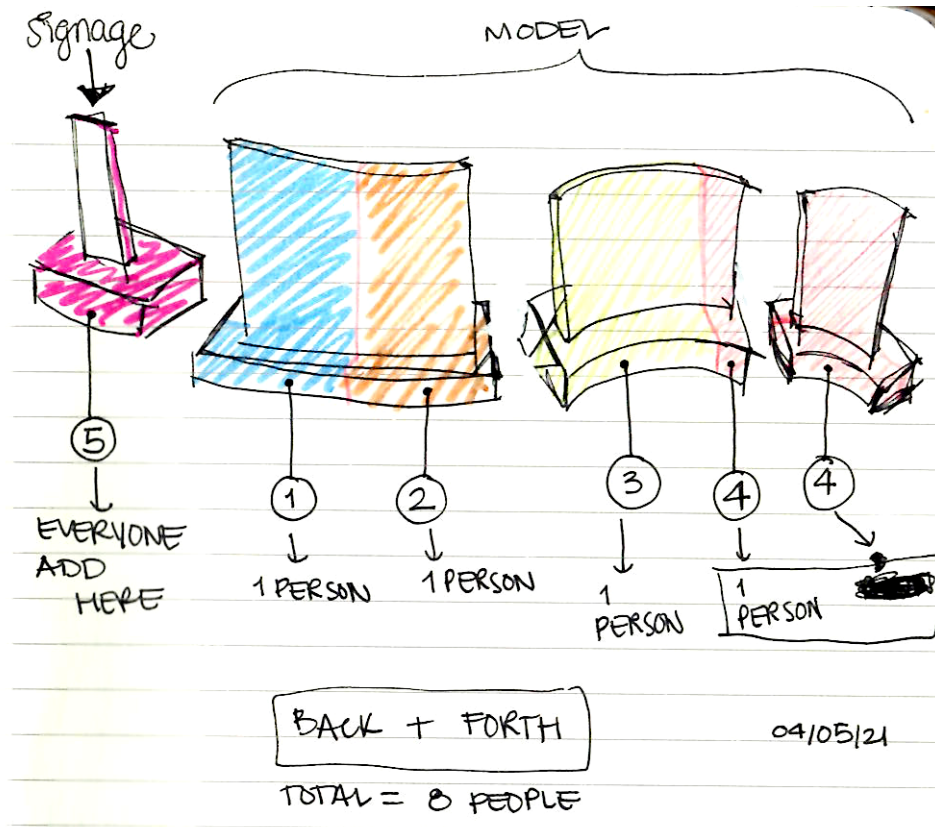 Signage
MODEL
5
1
2
3
4
4
EVERYONE
ADD
HERE
1 PERSON
1 PERSON
1
PERSON
1
PERSON
BACK + FORTH
04/05/21
TOTAL = 8 PEOPLE